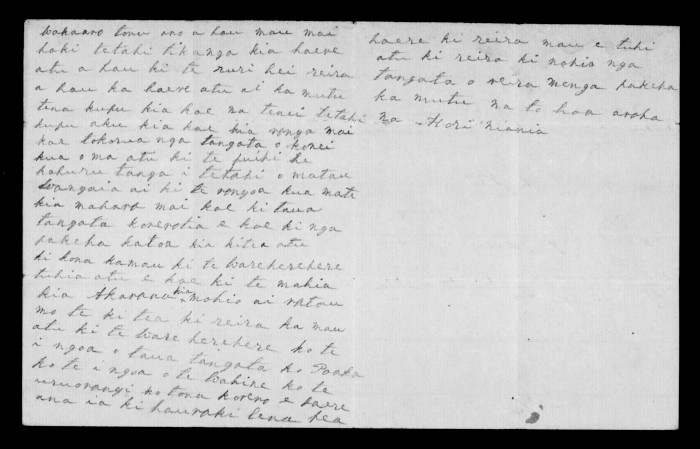 wakaaro tonu ano a hau mau mai
hoki tetahi tikanga kia haere
atu a hau ki te ruri hei reira
a hau ka haere atu ai ka mutu
tena kupu kia koe na tenei tetahi
kupu aku kia koe kia rongo mai
koe tokorua nga tangata o konei
kua oma atu ki te puihi he
kohuru tanga i tetahi o matau
wangaia ai ki te rongoa kua mate
kia maharo mai koe ki taua
tangata korerotia e koe ki nga
pakeha katoa kia kitea atu
ki kona kamau ki te wareherehere
tuhia atu e koe ki te mahia
kia Akarana kia mohio ai ratou
mo te kitea ki reira ka mau
atu ki te ware herehere ko te
i ngoa o taua tangata ko Paaka
ko te i ngoa o te wahine ko te
uruorangi ko tona korero e haere
ana ia ki hauraki tena pea
haere ki reira mau e tuhi
atu ki reira ki nohia nga
tangata o reira menga pakeha
ka mutu na to hoa aroha
na Hori Niania